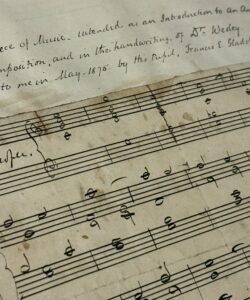 ece of Music intended as an Introduction to an An
mposition, and in the handwriting of Dr. Wesley
to me in May. 1876 by his Pupil, Francis E. Glads